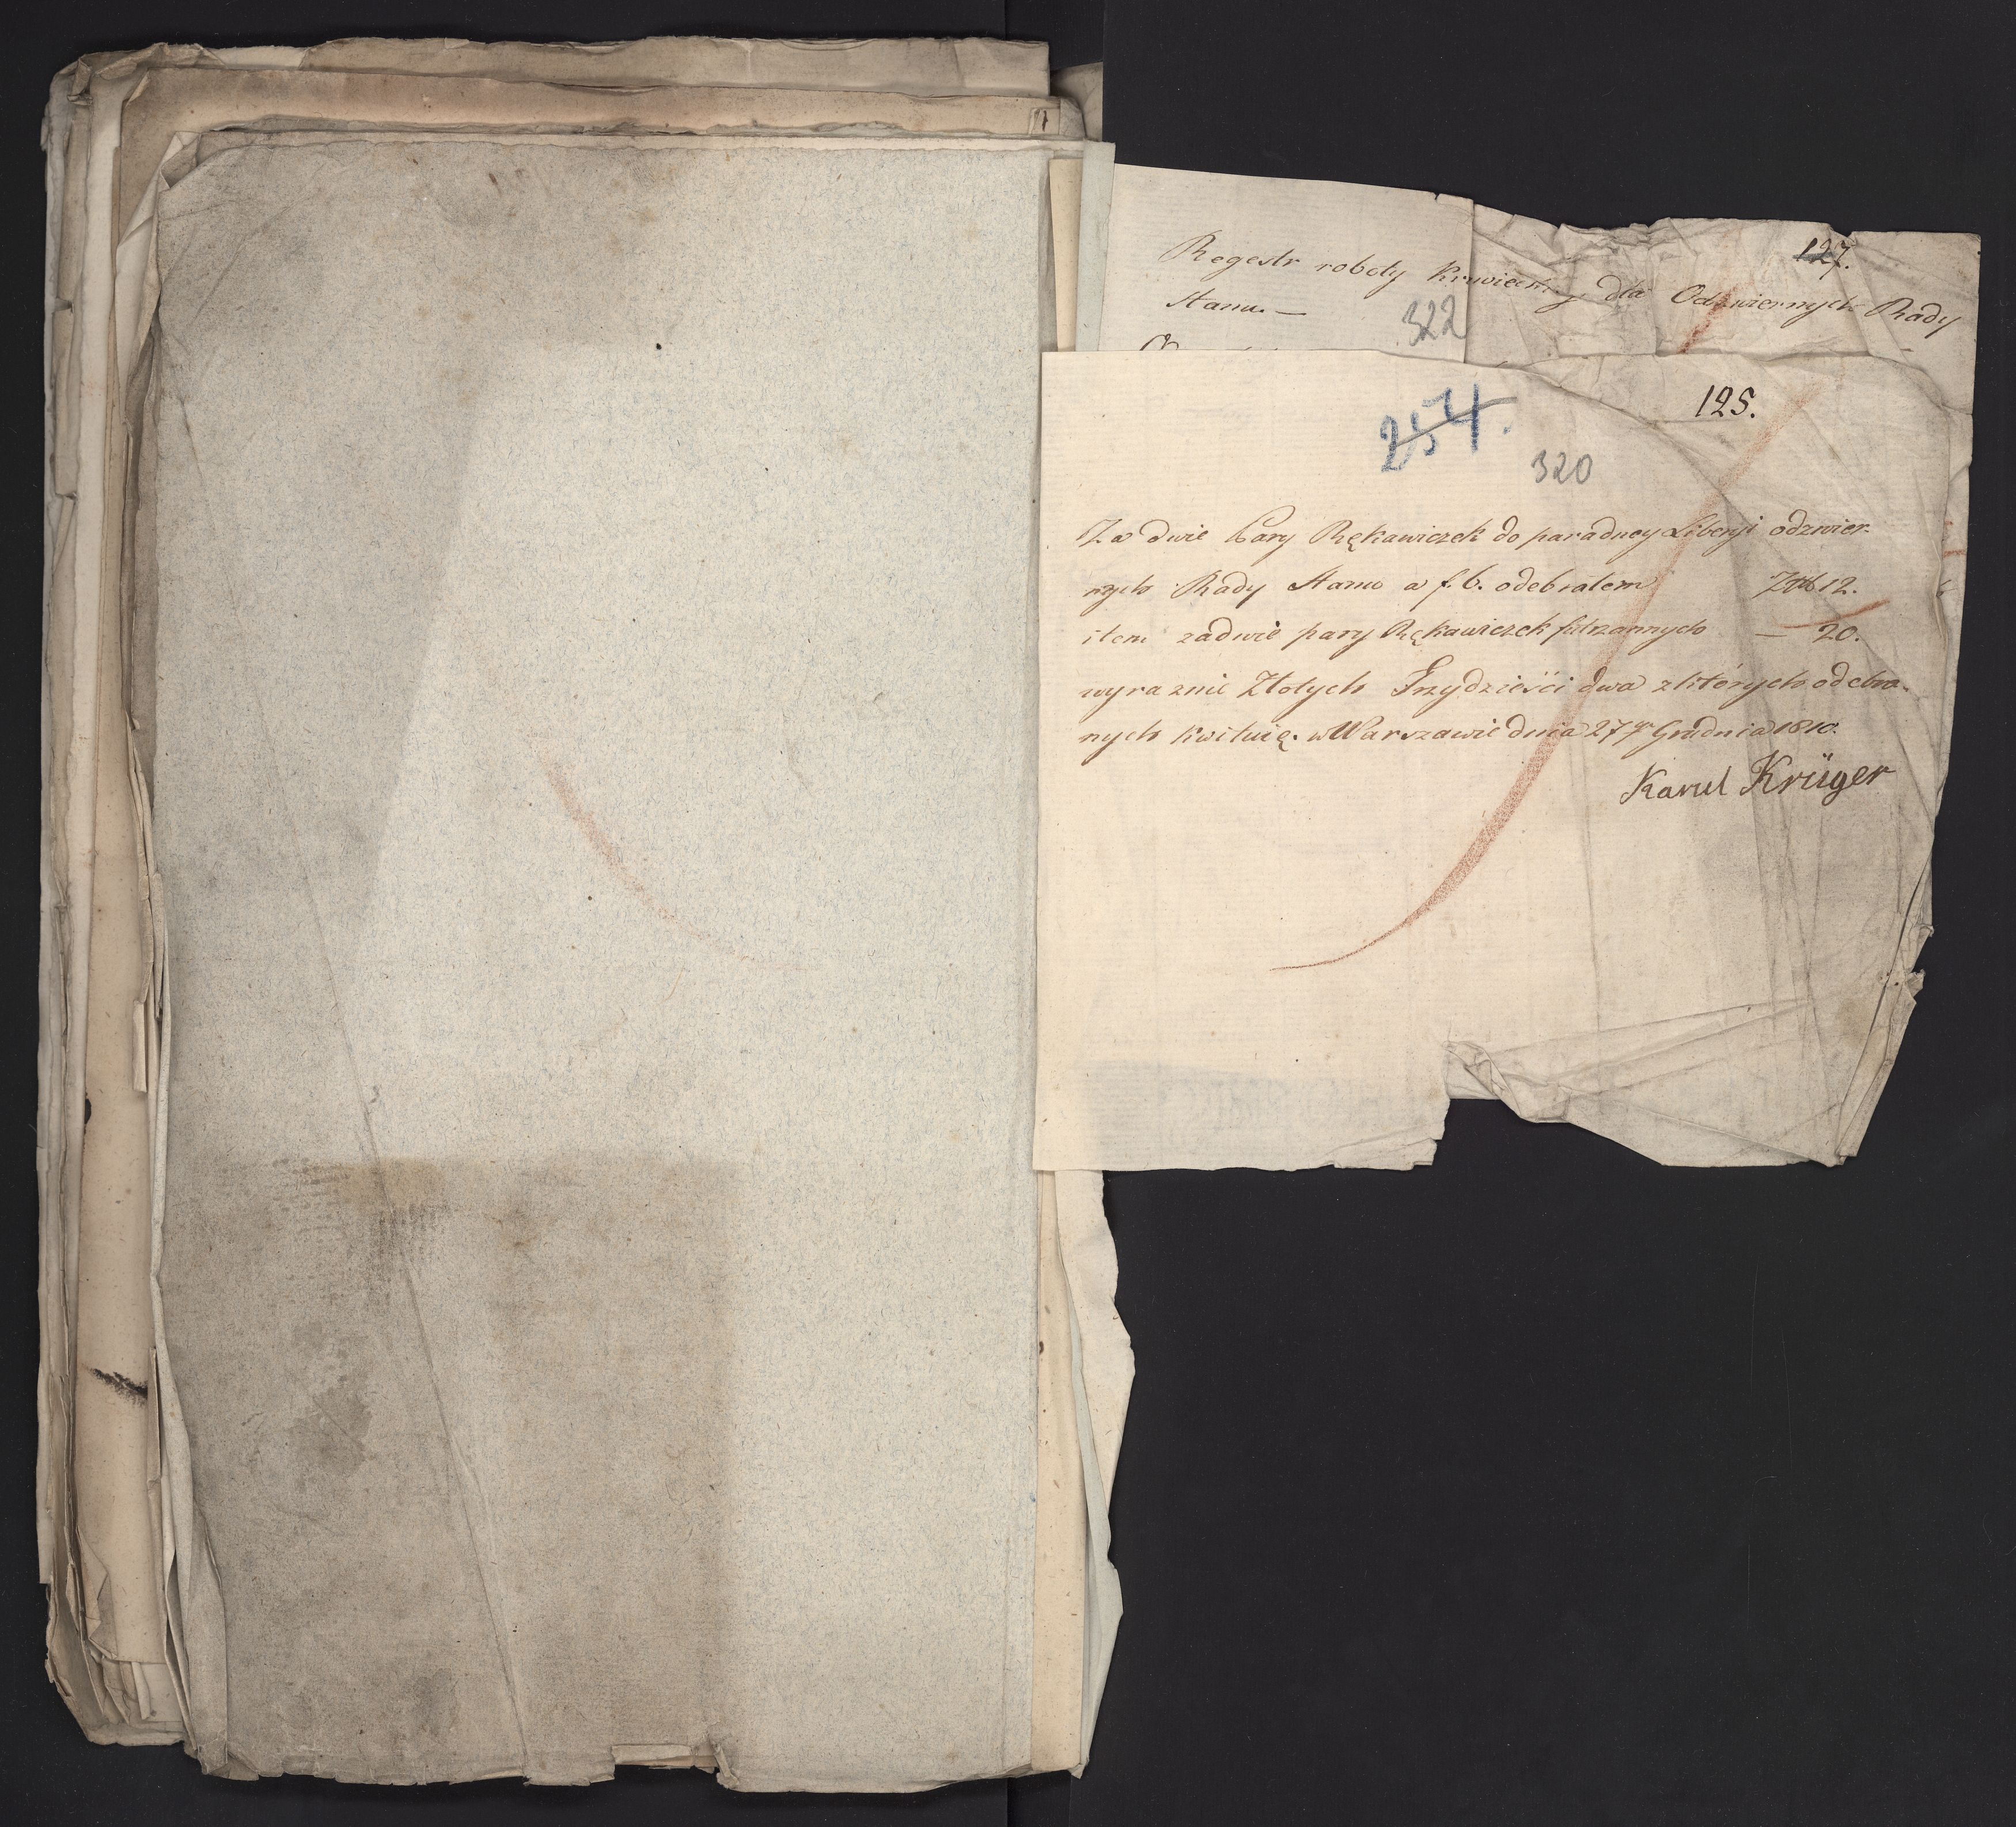 127.
Regestr roboty Krawieckiey dla Odzwiernych Rady
Stanu —
322
125.
254.
320
Za dwie Pary Rękawiczek do paradney Liberyi odzwier-
nych Rady Stanu a f. 6. odebrałem Złt 12.
item za dwie pary Rękawiczek futrzannych — 20.
wyraznie Złotych Trzydzieści dwa z których odebra-
nych kwituię. w Warszawie dnia 27 go Grudnia 1810.
Karul Krüger